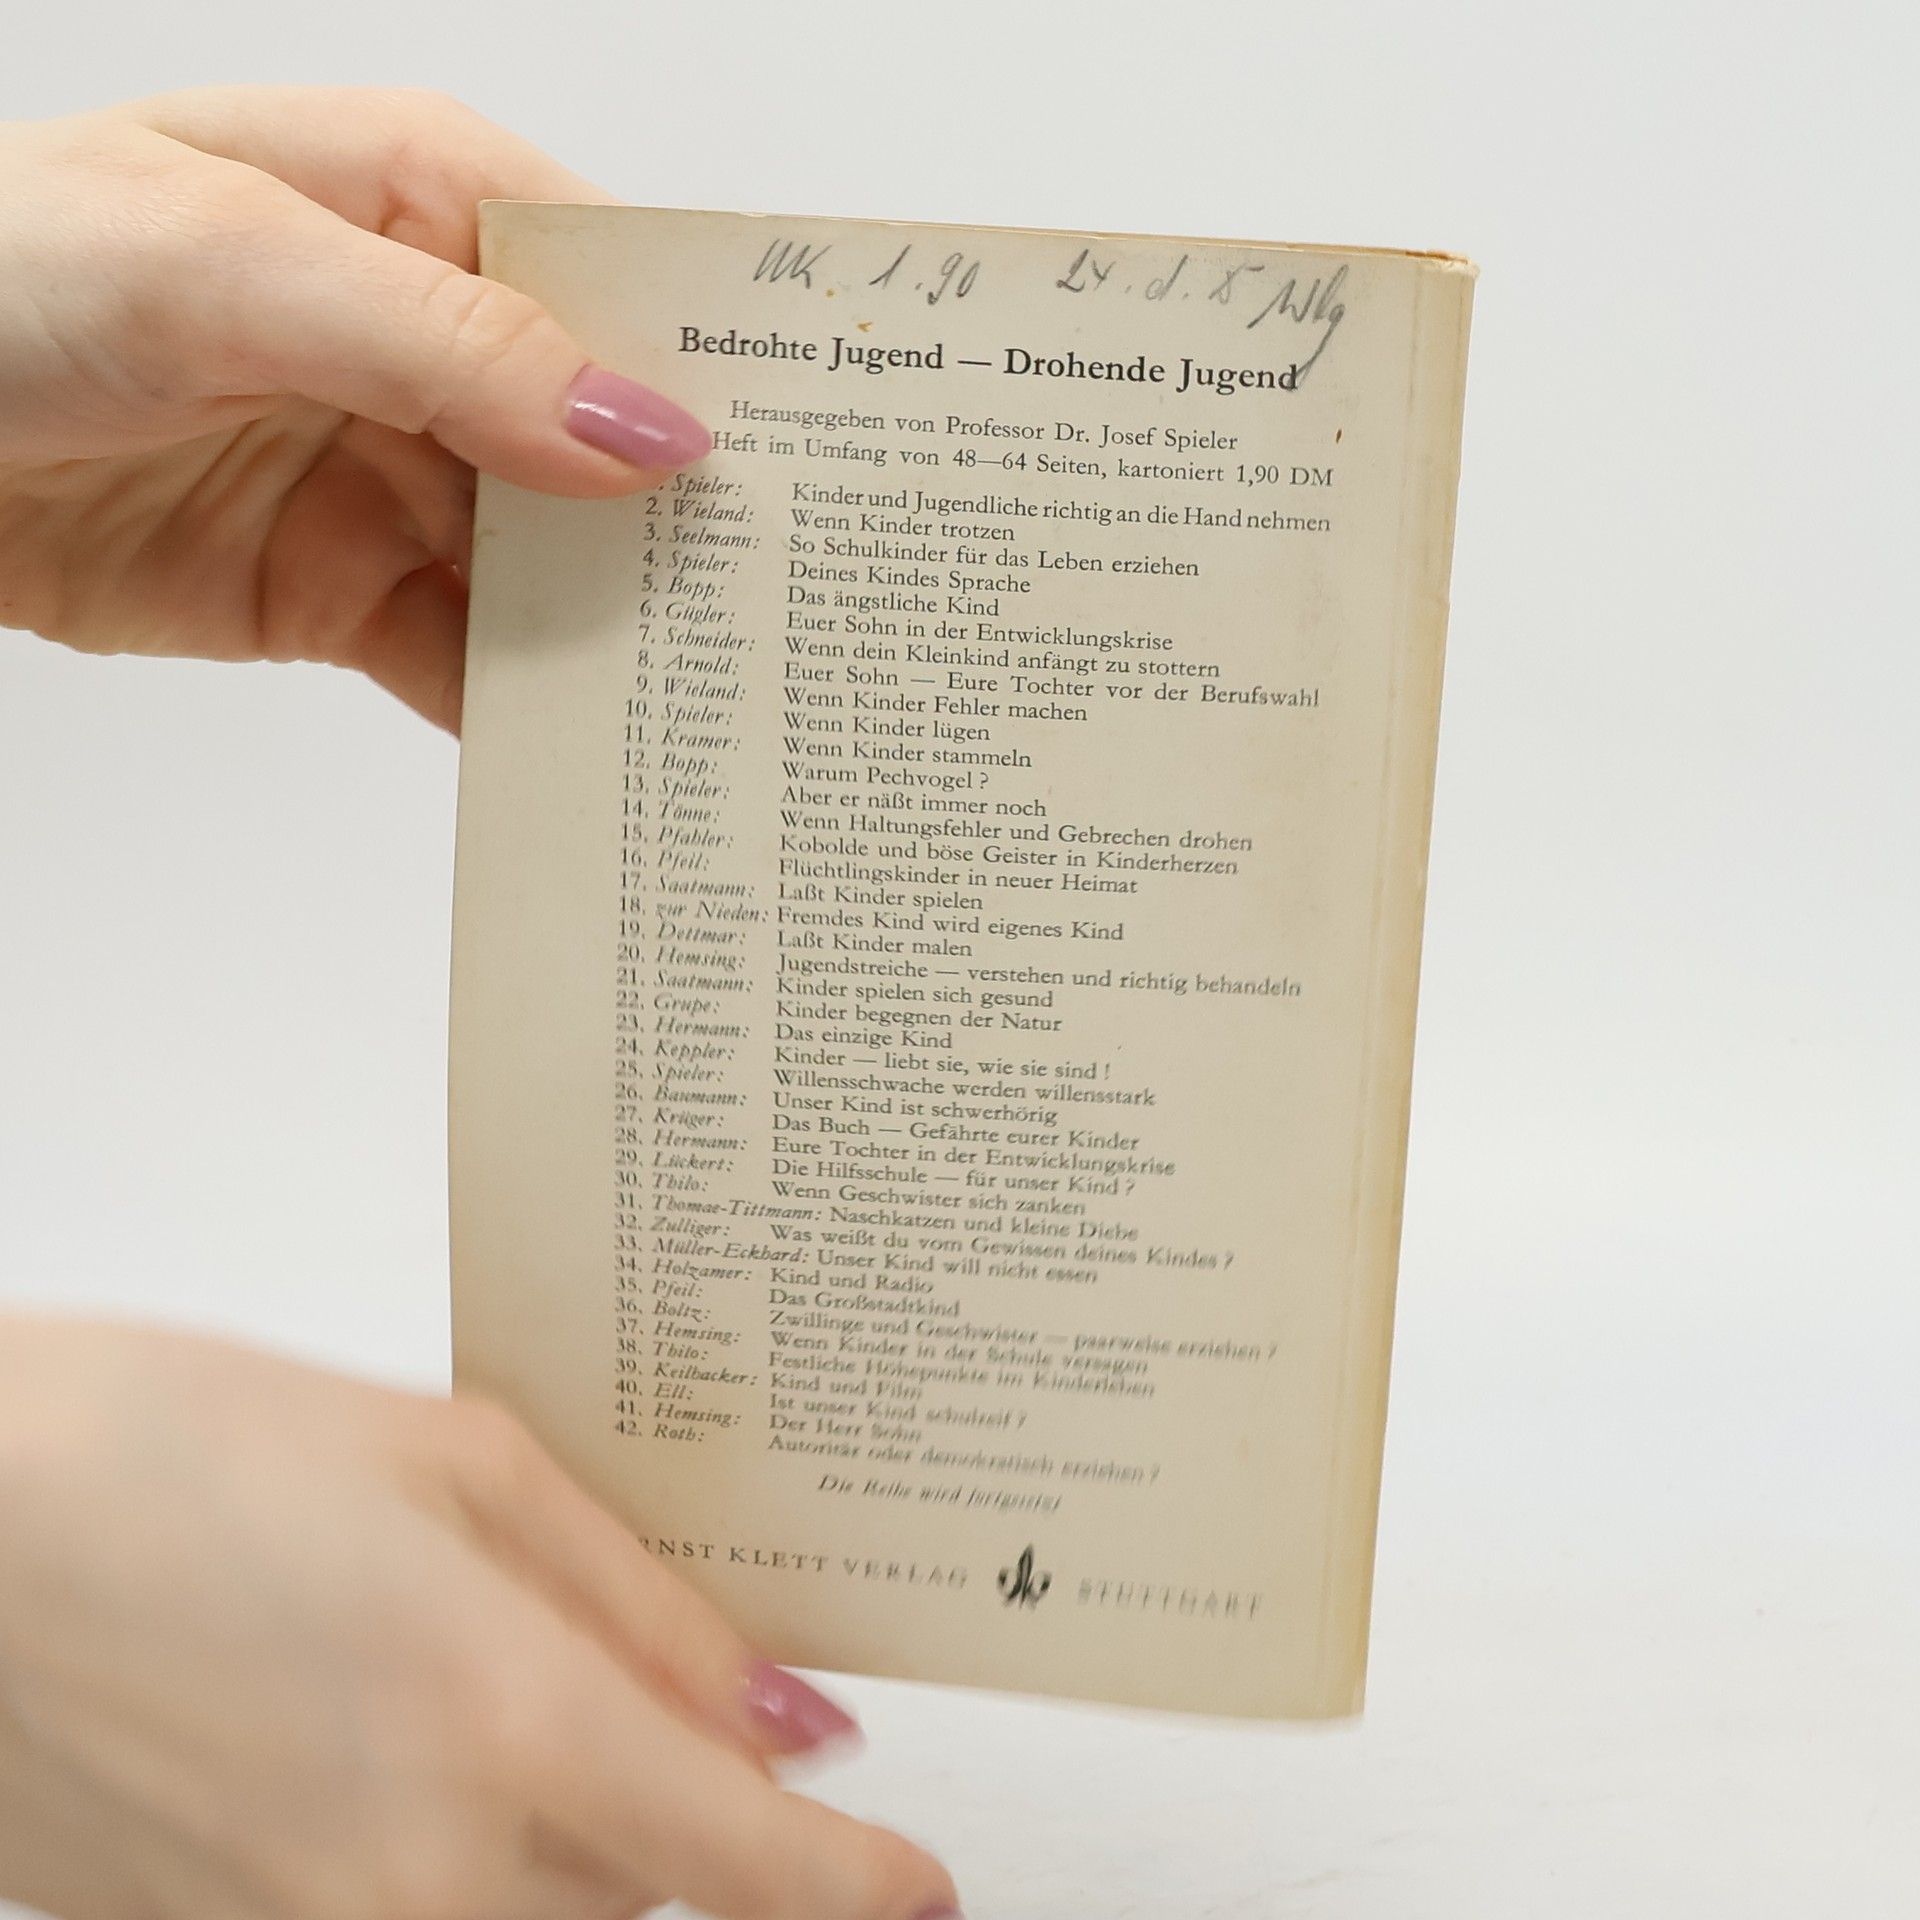 1.90 24. d.
Bedrohte Jugend — Drohende Jugend
Herausgegeben von Professor Dr. Josef Spieler
Heft im Umfang von 48—64 Seiten, kartoniert 1,90 DM
. Spieler: Kinder und Jugendliche richtig an die Hand nehmen
2. Wieland: Wenn Kinder trotzen
3. Seelmann: So Schulkinder für das Leben erziehen
4. Spieler: Deines Kindes Sprache
5. Bopp: Das ängstliche Kind
6. Gügler: Euer Sohn in der Entwicklungskrise
7. Schneider: Wenn dein Kleinkind anfängt zu stottern
8. Arnold: Euer Sohn — Eure Tochter vor der Berufswahl
9. Wieland: Wenn Kinder Fehler machen
10. Spieler: Wenn Kinder lügen
11. Kramer: Wenn Kinder stammeln
12. Bopp: Warum Pechvogel ?
13. Spieler: Aber er näßt immer noch
14. Tönne: Wenn Haltungsfehler und Gebrechen drohen
15. Pfahler: Kobolde und böse Geister in Kinderherzen
16. Pfeil: Flüchtlingskinder in neuer Heimat
17. Saatmann: Laßt Kinder spielen
18. zur Nieden: Fremdes Kind wird eigenes Kind
19. Dettmar: Laßt Kinder malen
20. Hemsing: Jugendstreiche — verstehen und richtig behandeln
21. Saatmann: Kinder spielen sich gesund
22. Grupe: Kinder begegnen der Natur
23. Hermann: Das einzige Kind
24. Keppler: Kinder — liebt sie, wie sie sind !
25. Spieler: Willensschwache werden willensstark
26. Baumann: Unser Kind ist schwerhörig
27. Krüger: Das Buch — Gefährte eurer Kinder
28. Hermann: Eure Tochter in der Entwicklungskrise
29. Lückert: Die Hilfsschule — für unser Kind ?
30. Thilo: Wenn Geschwister sich zanken
31. Thomae-Tittmann: Naschkatzen und kleine Diebe
32. Zulliger: Was weißt du vom Gewissen deines Kindes ?
33. Müller-Eckhard: Unser Kind will nicht essen
34. Holzamer: Kind und Radio
35. Pfeil: Das Großstadtkind
36. Boltz: Zwillinge und Geschwister — paarweise erziehen ?
37. Hemsing: Wenn Kinder in der Schule versagen
38. Thilo: Festliche Höhepunkte im Kinderleben
39. Keilhacker: Kind und Film
40. Ell: Ist unser Kind schulreif ?
41. Hemsing: Der Herr Sohn
42. Roth: Autoritär oder demokratisch erziehen ?
Die Reihe wird fortgesetzt
RNST KLETT VERLAG STUTTGART